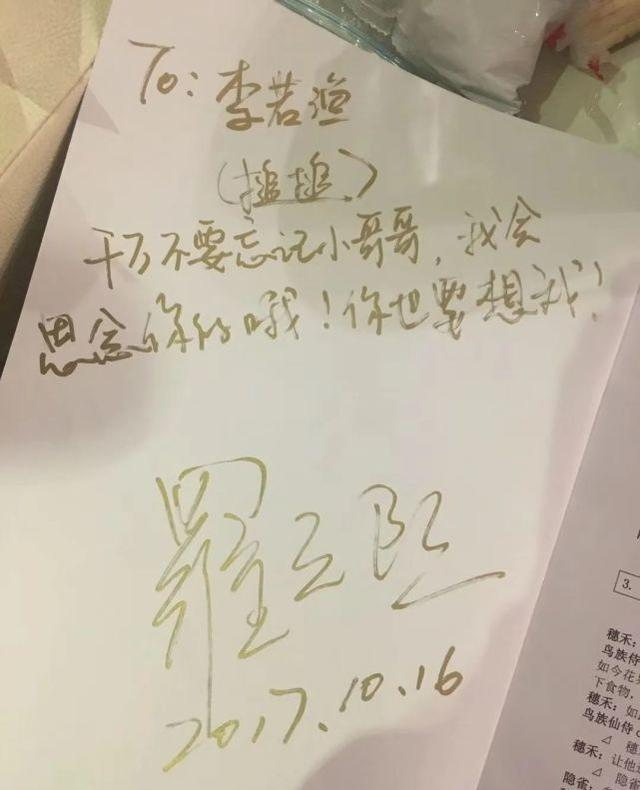 To: 李若渔
(搥搥)
千万不要忘记小哥哥,我会
思念你的哦!你也要想我!
罗云熙
2017.10.16
3.
穗禾:
鸟族侍
如今花
下食物,
穗禾:如
鸟族仙侍
⊿ 穗
穗禾:让他
⊿ 隐雀
隐雀: